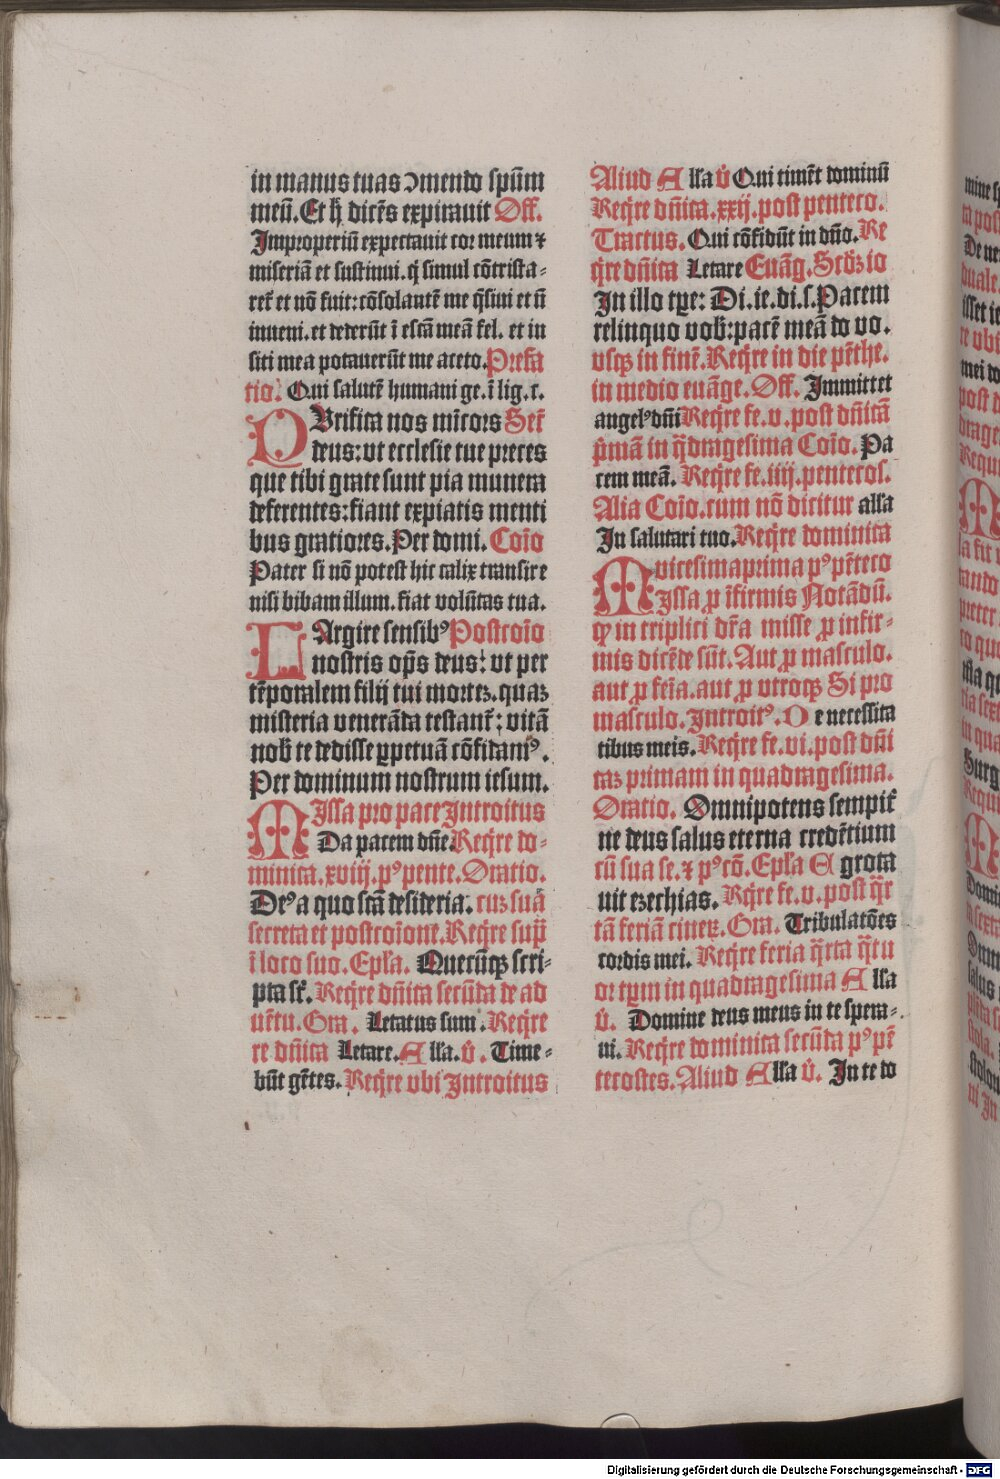 in manus tuas ɔmendo spūm
meū. Et h̄ dicēs expirauit Off.
Improperiū expectauit cor meum ⁊
miseriā et sustinui. q̄ simul cōtrista-
ret̄ et nō fuit: cōsolantē me q̄siui et ū
inueni. et dederūt ī escā meā fel. et in
siti mea potauerūt me aceto. Prefa
tio. Qui salutē humani ge. ī lig. c.
PUrifica nos mīcors Secr̄
deus: vt ecclesie tue preces
que tibi grate sunt pia munera
deferentes: fiant expiatis menti
bus gratiores. Per domi. Coīo
Pater si nō potest hic calix transire
nisi bibam illum. fiat volūtas tua.
LArgire sensibꝰ Postcoīo
nostris op̄s deus: vt per
tēporalem filij tui mortez. quaz
misteria venerāda testant̄: vitā
nob̄ te dedisse ꝑpetuā cōfidamꝰ.
Per dominum nostrum iesum.
MIssa pro pace Introitus
Da pacem dn̄e. Reqr̄e do-
minica. xviij. pꝰ pente. Oratio.
Deꝰ a quo sctā desideria. cuz suā
secreta et postcoīone. Reqr̄e sup̄
ī loco suo. Epl̄a. Quecūqꝫ scri-
pta st̄. Reqr̄e dn̄ica secūda de ad
uētu. Gra. Letatus sum. Reqr̄e
re dn̄ica Letare. Alla. v̄. Time-
būt gētes. Reqr̄e vbi Introitus
Aliud Alla v̄ Qui timēt dominū
Reqr̄e dn̄ica. xxij. post penteco.
Tractus. Qui cōfidūt in dn̄o. Re
qr̄e dn̄ica Letare Euāg. Scdꝫ io
In illo tꝑe: Di. ie. di. s. Pacem
relinquo vob̄: pacē meā do vo.
vsqꝫ in finē. Reqr̄e in die pēthe.
in medio euāge. Off. Immittet
angelꝰ dn̄i Reqr̄e fe. v. post dn̄icā
p̄mā in q̄dragesima Coīo. Pa
cem meā. Reqr̄e fe. iiij. pentecos.
Alia Coīo. cum nō dicitur alla
In salutari tuo. Reqr̄e dominica
vicesimaprima pꝰ pēteco
MIssa ꝓ īfirmis Notādū.
ꝙ in triplici dr̄a misse ꝓ infir-
mis dicēde sūt. Aut ꝓ masculo.
aut ꝓ feīa. aut ꝓ vtroqꝫ Si pro
masculo. Introitꝰ. De necessita
tibus meis. Reqr̄e fe. vi. post dn̄i
caꝫ primam in quadragesima.
Oratio. Omnipotens sempit̄
ne deus salus eterna credētium
cū sua se. ⁊ pꝰcō. Epl̄a Egrota
uit ezechias. Rqr̄e fe. v. post q̄r
tā feriā cinerꝫ. Gra. Tribulatōes
cordis mei. Reqr̄e feria q̄rta q̄tu
or tꝑm in quadragesima Alla
v̄. Domine deus meus in te spera-
ui. Reqr̄e dominica secūda pꝰ pē
tecostes. Aliud Alla v̄. In te do
Digitalisierung gefördert durch die Deutsche Forschungsgemeinschaft - DFG